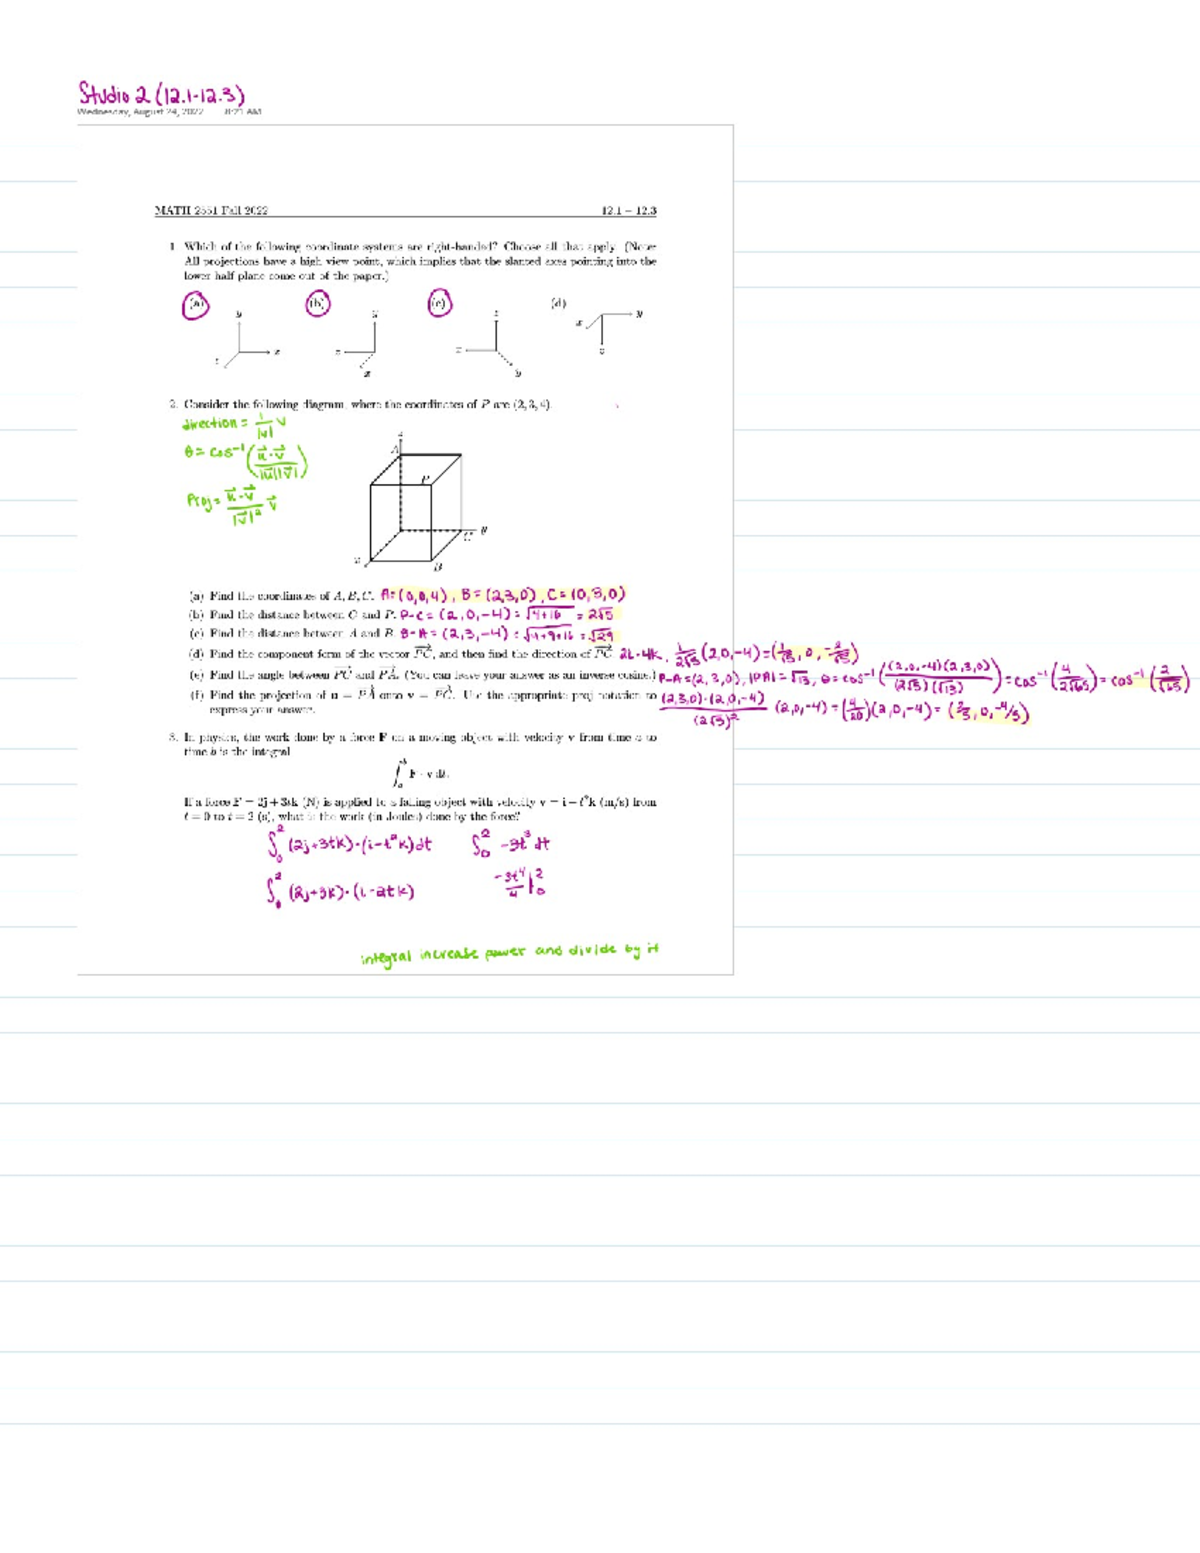 Studio 2 (12.1-12.3)
Wednesday, August 24, 2022 8:21 AM
MATH 2551 Fall 2022 12.1 – 12.3
1. Which of the following coordinate systems are right-handed? Choose all that apply. (Note:
All projections have a high view point, which implies that the slanted axes pointing into the
lower half plane come out of the paper.)
(a) (b) (c) (d)
2. Consider the following diagram, where the coordinates of P are (2, 3, 4).
direction = 1/|v| v
θ = cos⁻¹ (u⃗·v⃗ / |u⃗||v⃗|)
Proj = u⃗·v⃗ / |v⃗|² v⃗
A
P
C y
B
(a) Find the coordinates of A, B, C. A=(0,0,4), B=(2,3,0), C=(0,3,0)
(b) Find the distance between C and P. P-C=(2,0,-4)=√4+16 = 2√5
(c) Find the distance between A and B. B-A=(2,3,-4)=√4+9+16 = √29
(d) Find the component form of the vector PC, and then find the direction of PC 2i-4k, 1/2√5 (2,0,-4)=(1/√5, 0, -2/√5)
(e) Find the angle between PC and PA. (You can leave your answer as an inverse cosine.) P-A=(2,3,0), |PA|=√13, θ=cos⁻¹((2,0,-4)(2,3,0) / (2√5)(√13)) = cos⁻¹(4/2√65) = cos⁻¹(2/√65)
(f) Find the projection of u = PA onto v = PC. Use the appropriate proj notation to (2,3,0)·(2,0,-4) / (2√5)² (2,0,-4)=(4/20)(2,0,-4)=(2/5, 0, -4/5)
express your answer.
3. In physics, the work done by a force F on a moving object with velocity v from time a to
time b is the integral
∫ₐᵇ F · v dt.
If a force F = 2j + 3tk (N) is applied to a falling object with velocity v = i − t²k (m/s) from
t = 0 to t = 2 (s), what is the work (in Joules) done by the force?
∫₀² (2j+3tk)·(i-t²k)dt ∫₀² -3t³ dt
∫₀² (2j+3k)·(i-2tk) -3t⁴/4 |₀²
integral increase power and divide by it